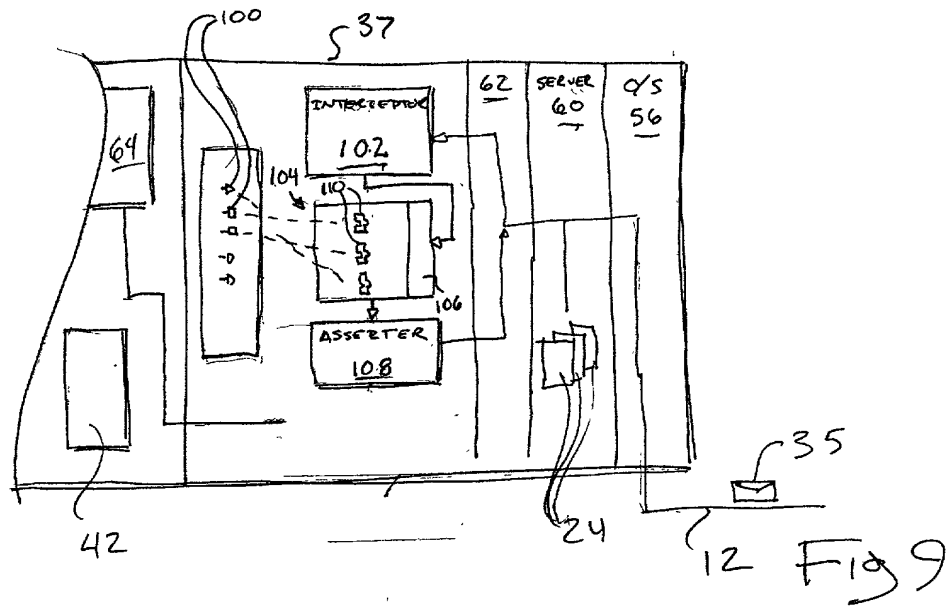 100
37
64
INTERCEPTOR
102
62
SERVER
60
O/S
56
104
110
106
ASSERTER
108
42
24
35
12
Fig 9